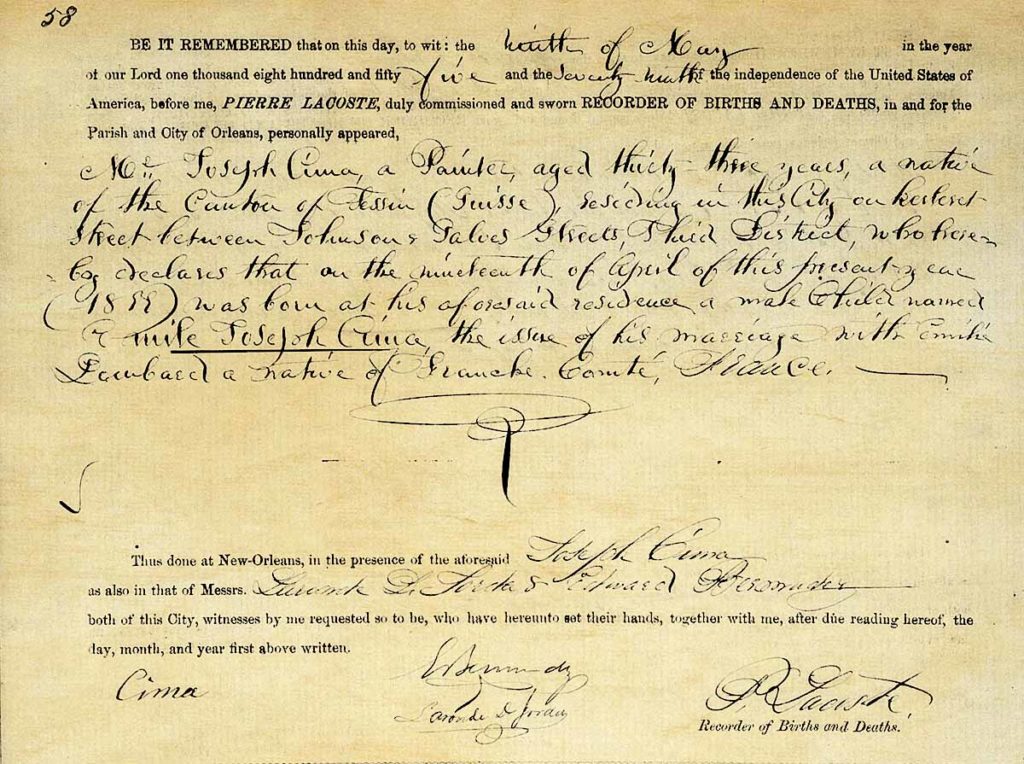 58
BE IT REMEMBERED that on this day, to wit: the ninth of May in the year
of our Lord one thousand eight hundred and fifty five and the seventy ninth of the independence of the United States of
America, before me, PIERRE LACOSTE, duly commissioned and sworn RECORDER OF BIRTHS AND DEATHS, in and for the
Parish and City of Orleans, personally appeared,
Mr. Joseph Cima, a Painter, aged thirty-three years, a native
of the Canton of Tessin (Suisse), residing in this City on Kerleret
Street between Johnson & Galvez Streets, Third District, who here-
-by declares that on the nineteenth of April of this present year
(1855) was born at his aforesaid residence a male Child named
Emile Joseph Cima, the issue of his marriage with Emilie
Lambard a native of Franche-Comté, France.
Thus done at New-Orleans, in the presence of the aforesaid Joseph Cima
as also in that of Messrs. & Edward Bermudez
both of this City, witnesses by me requested so to be, who have hereunto set their hands, together with me, after due reading hereof, the
day, month, and year first above written.
Cima
EBermudez
P. Lacoste
Recorder of Births and Deaths.